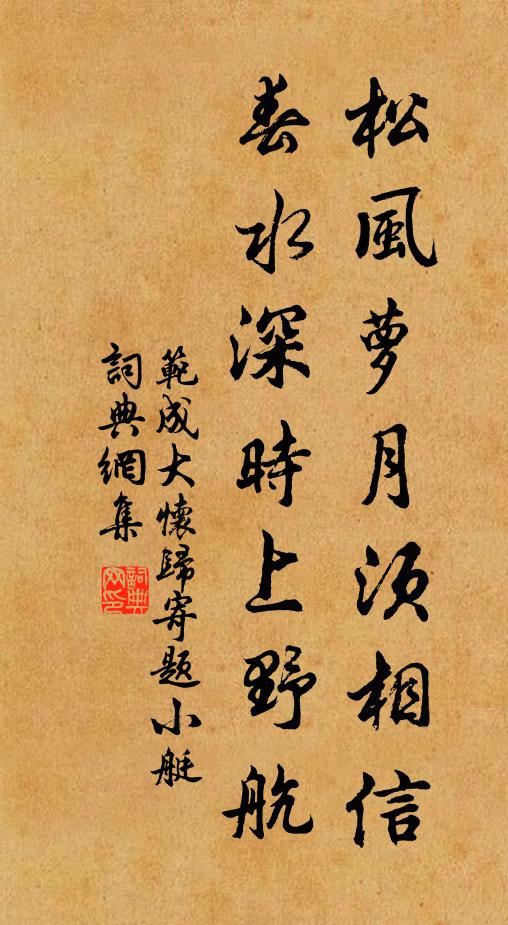 松風夢月須相信
春水深時上野航
範成大懷歸寄題小艇
詞典網集
詞典网印